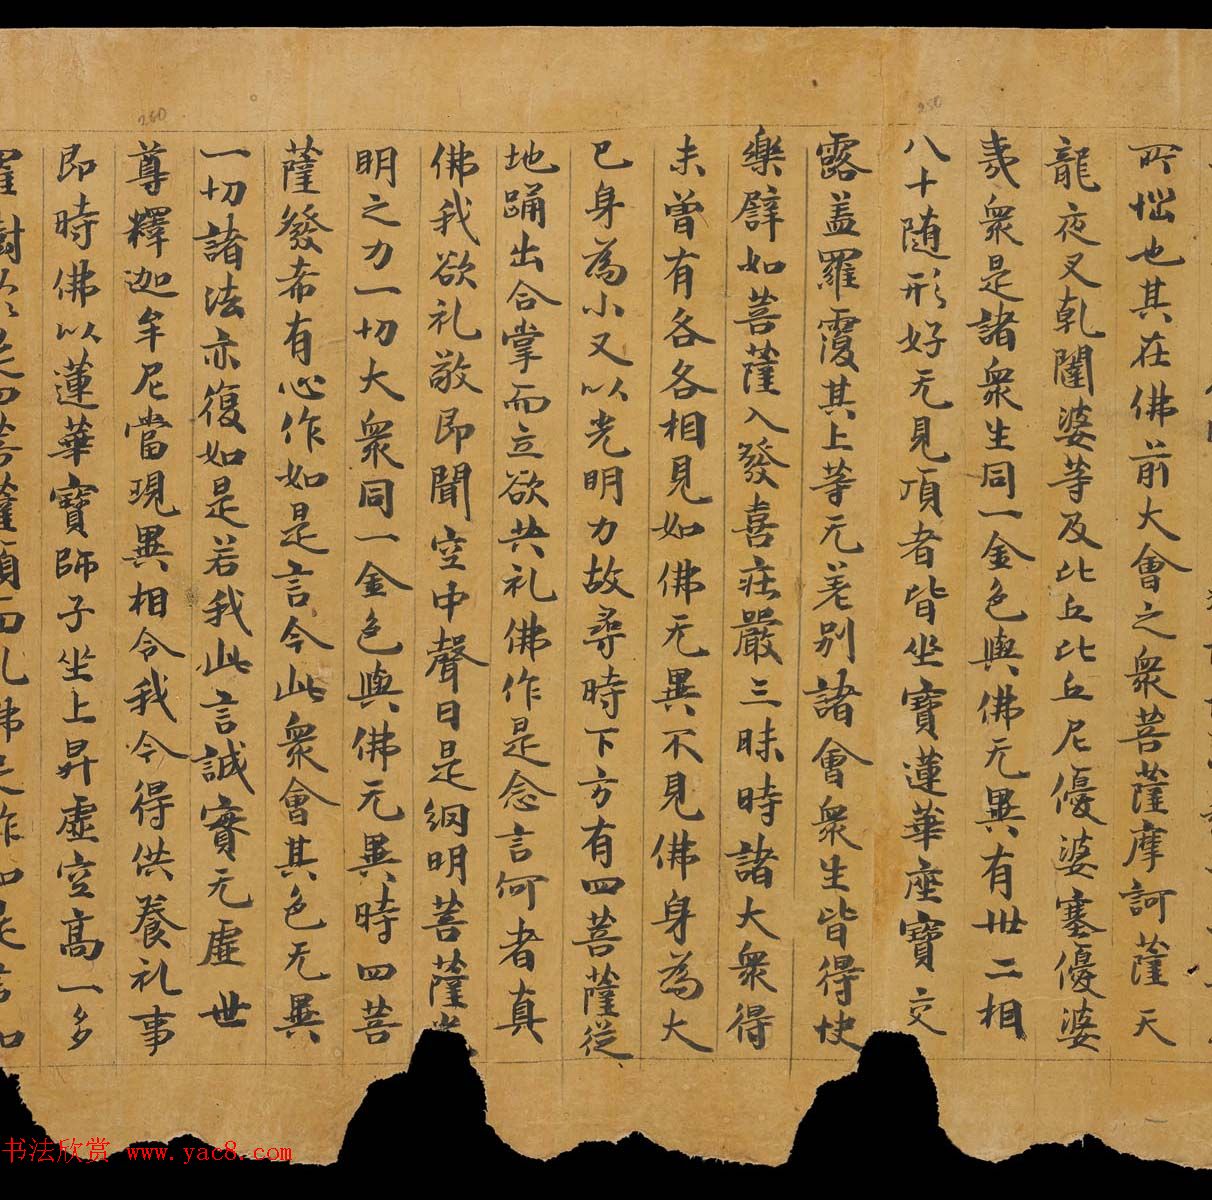 所惱也其在佛前大會之眾菩薩摩訶薩天
龍夜叉乹闥婆等及比丘比丘尼優婆塞優婆
夷眾是諸眾生同一金色與佛无異有卅二相
八十随形好无見頂者皆坐寶蓮華座寶交
露盖羅覆其上等无差别諸會眾生皆得快
樂譬如菩薩入發喜莊嚴三昧時諸大眾得
未曾有各各相見如佛无異不見佛身為大
已身為小又以光明力故尋時下方有四菩薩從
地踊出合掌而立欲共礼佛作是念言何者真
佛我欲礼敬即聞空中聲曰是網明菩薩光
明之力一切大眾同一金色與佛无異時四菩
薩發希有心作如是言今此眾會其色无異
一切諸法亦復如是若我此言誠實无虛世
尊釋迦牟尼當現異相令我今得供養礼事
即時佛以蓮華寶師子坐上昇虛空高一多
羅樹於是四菩薩頭面礼佛足作如是言如
260
250
书法欣赏 www.yac8.com